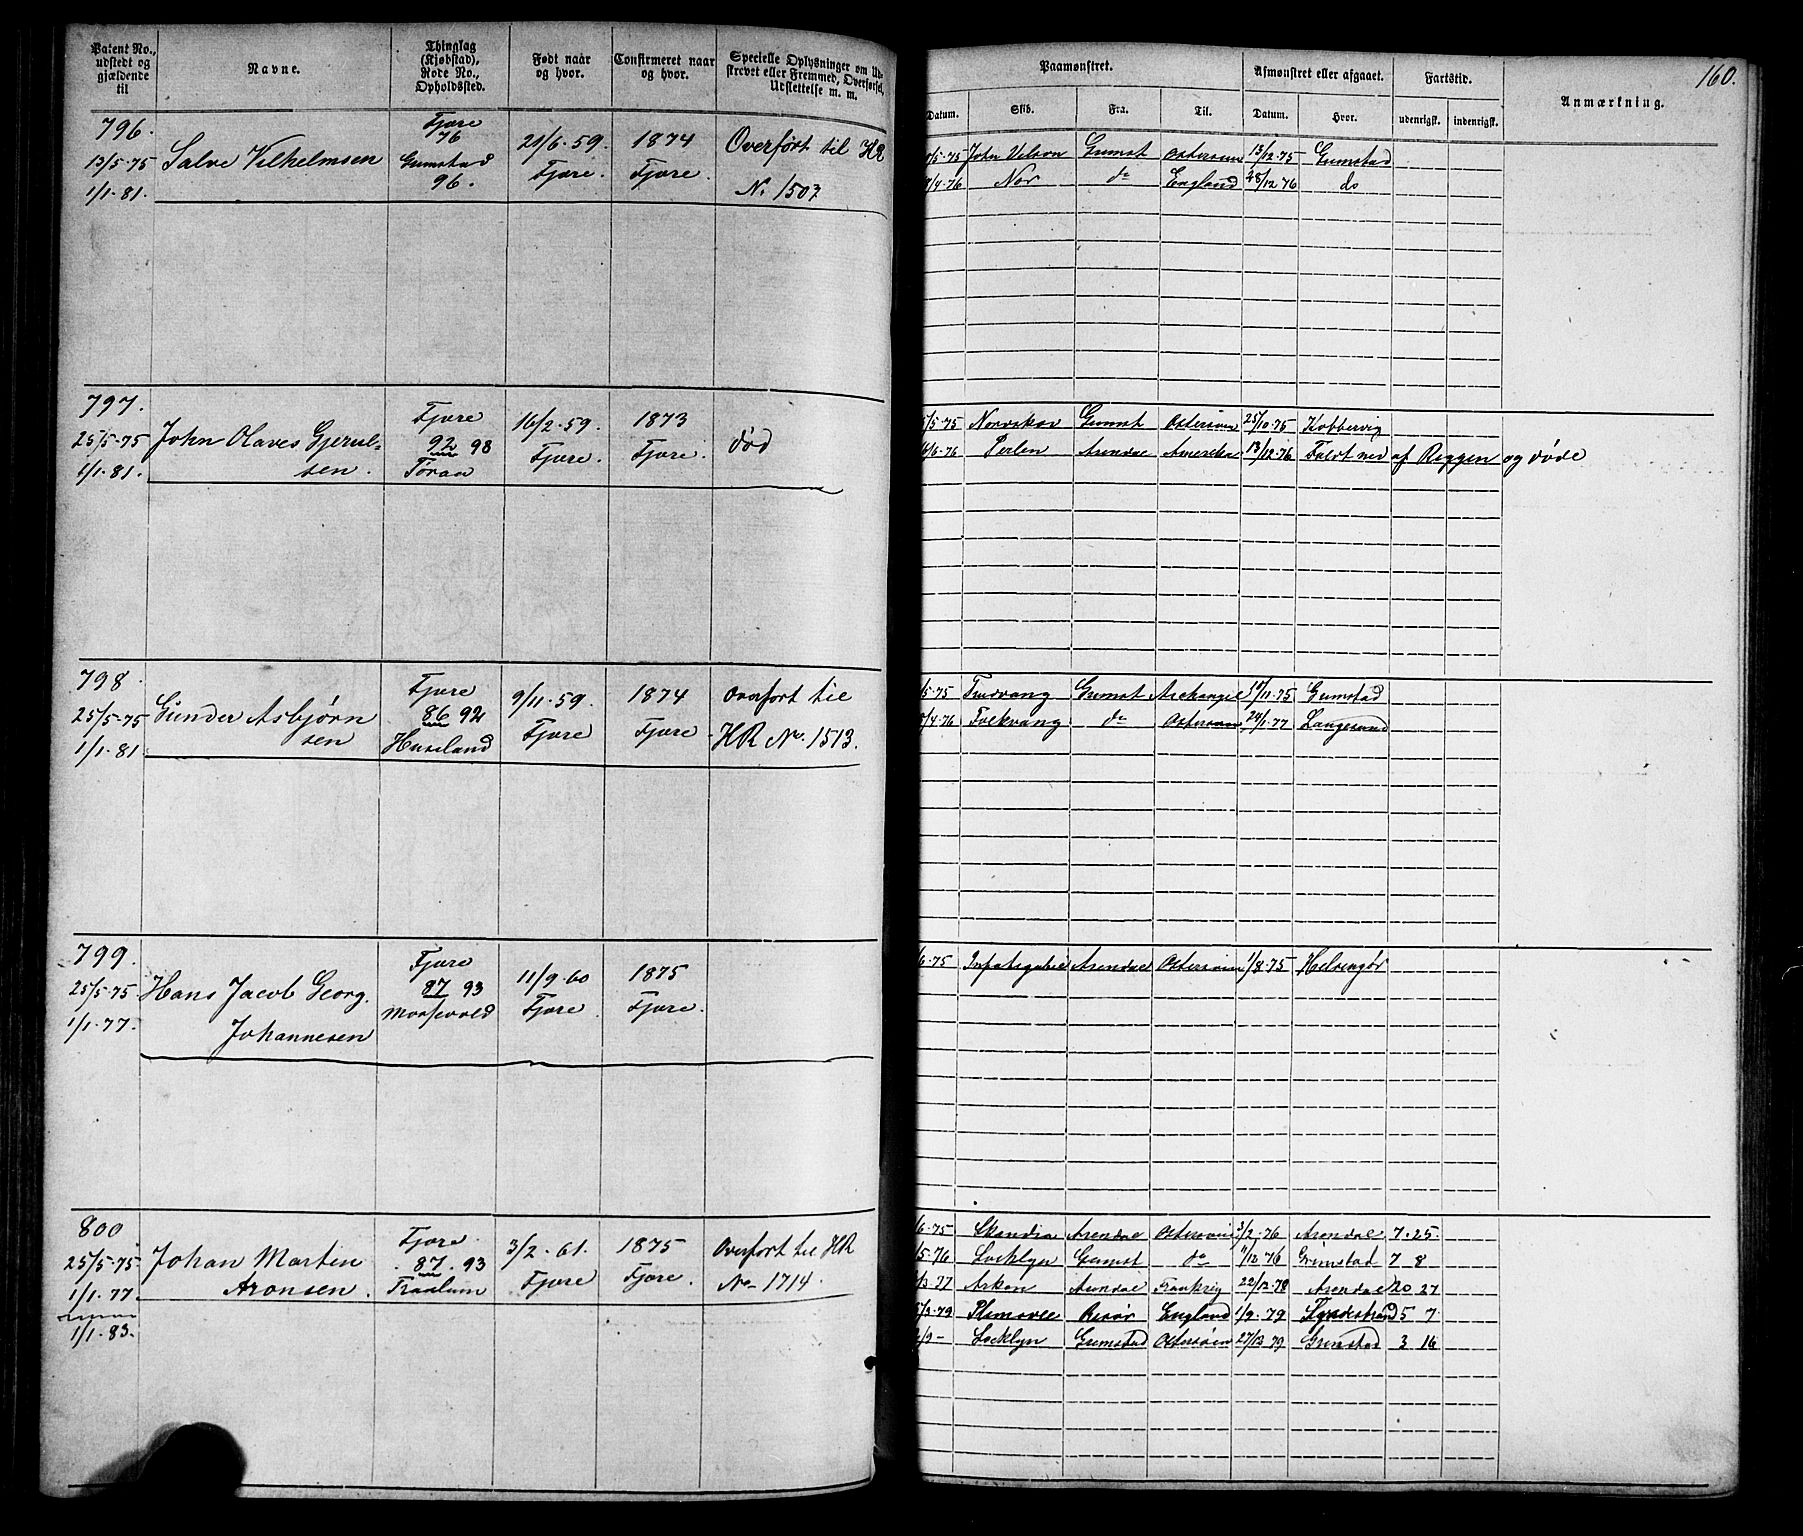 160.
Patent No., udstedt og gjældende til
Navne.
Thinglag (Kjøbstad), Rode No., Opholdssted.
Født naar og hvor.
Confirmeret naar og hvor.
Specielle Oplysninger om Udskrevet eller Fremmed, Overførsel, Udslettelse m. m.
Paamønstret.
Afmønstret eller afgaaet.
Fartstid.
Anmærkning.
Datum. Skib. Fra. Til. Datum. Hvor. udenrigsk. indenrigsk.
796.
13/5-75
1/1.81.
Salve Vilhelmsen
Fjære
76
Grimstad
96.
21/6.59.
Fjære.
1874
Fjære.
Overført til HR
No 1507
/5-75 John Vilson Grimst Østersøen 13/12-75 Grimstad
/4-76 Nor do England 28/12 76 do
797.
25/5-75
1/1.81.
John Olaves Gjerul-
sen.
Fjære
92 98
Tøraa
16/2-59.
Fjære.
1873
Fjære.
død
/5-75 Norvskov Grimst Østersøen 25/10-75 Kobbervig
/6-76 Perlen Arendal Amerika 13/12-76 Faldt ned af Riggen og døde
798.
25/5-75
1/1-81
Gunder Asbjørn
sen
Fjære
86 92
Huseland
9/11-59.
Fjære
1874
Fjære
Overført til
HR No. 1513.
/5-75 Grimst Archangel /11-75 Grimstad
/4-76 Folkvang do Østersøen 24/1-77 Langesund
799.
25/5-75
1/1-77.
Hans Jacob Georg.
Johannesen
Fjære
87 93
11/9-60
Fjære.
1875
Fjære.
/6-75 Arendal Østersøen 1/8-75 Helsingør
800
25/5-75
1/1.77.
1/1-83.
Johan Martin
Aronsen.
Fjære.
87.93
Fraalum
3/2.61.
Fjære
1875
Fjære.
Overført til HR
No- 1714.
/6-75 Skandia Arendal Østersøen 3/2-76 Arendal 7.25.
/5-76 Locklyn Grimst do /12 76 Grimstad 7 8
/3-77 Askon Arendal Frankrig 22/12-78 Arendal 20 27
/3-79 Risør England 1/9-79 5 7
/9- Locklyn Grimstad Østersøen 27/12 79 Grimstad 3 16